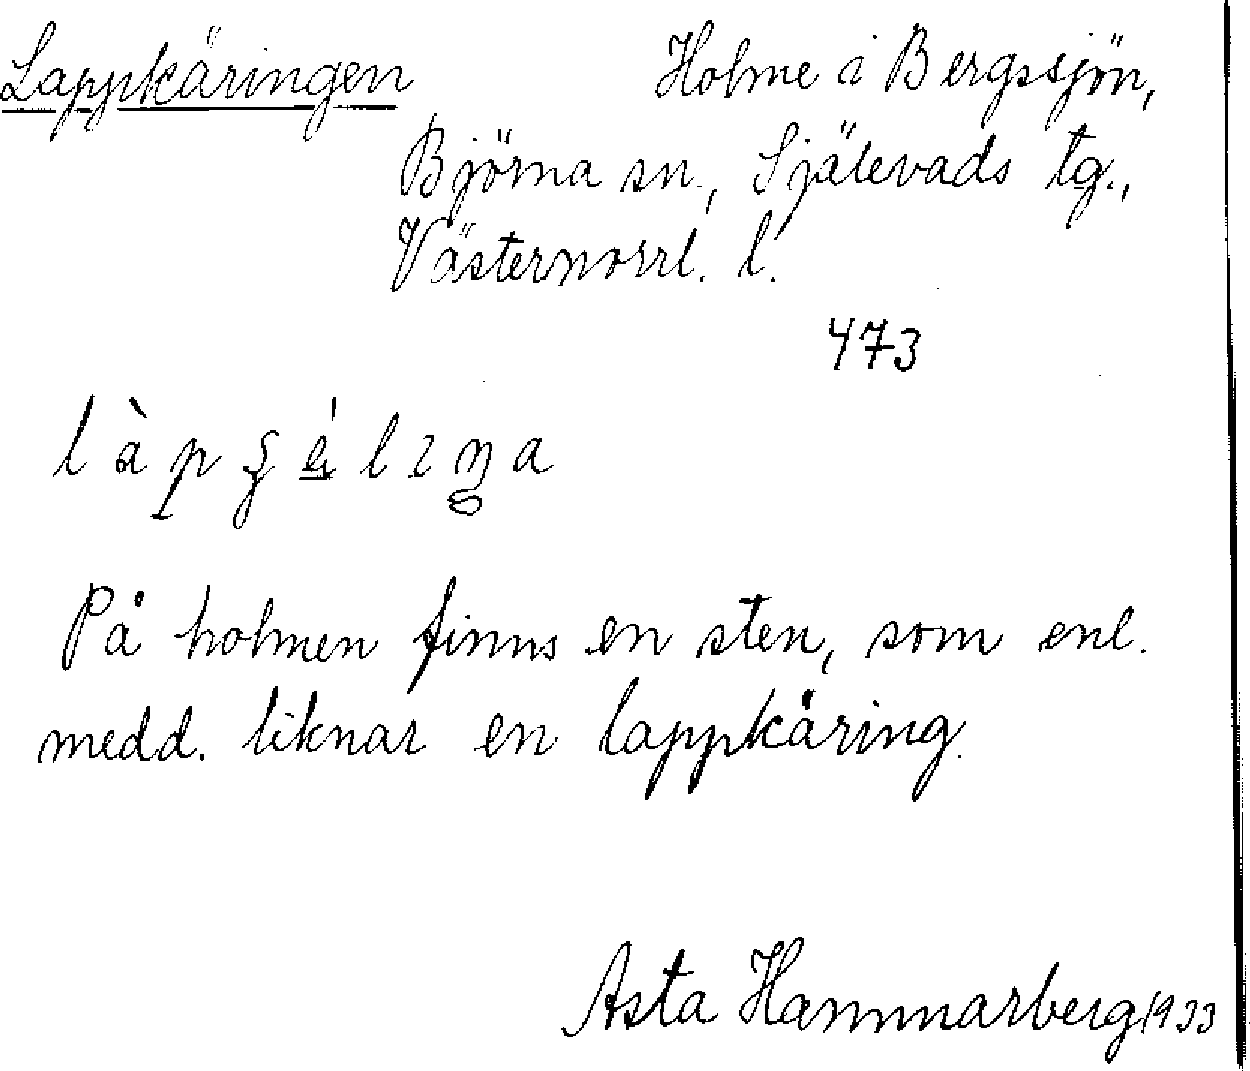 Lappkäringen Holme i Bergssjön,
Björna sn., Själevads tg.,
Västernorrl. l.
473
På holmen finns en sten, som enl.
medd. liknar en lappkäring.
Asta Hammarberg 1933